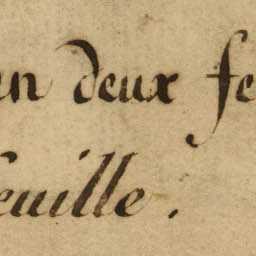 en deux fe
euille.